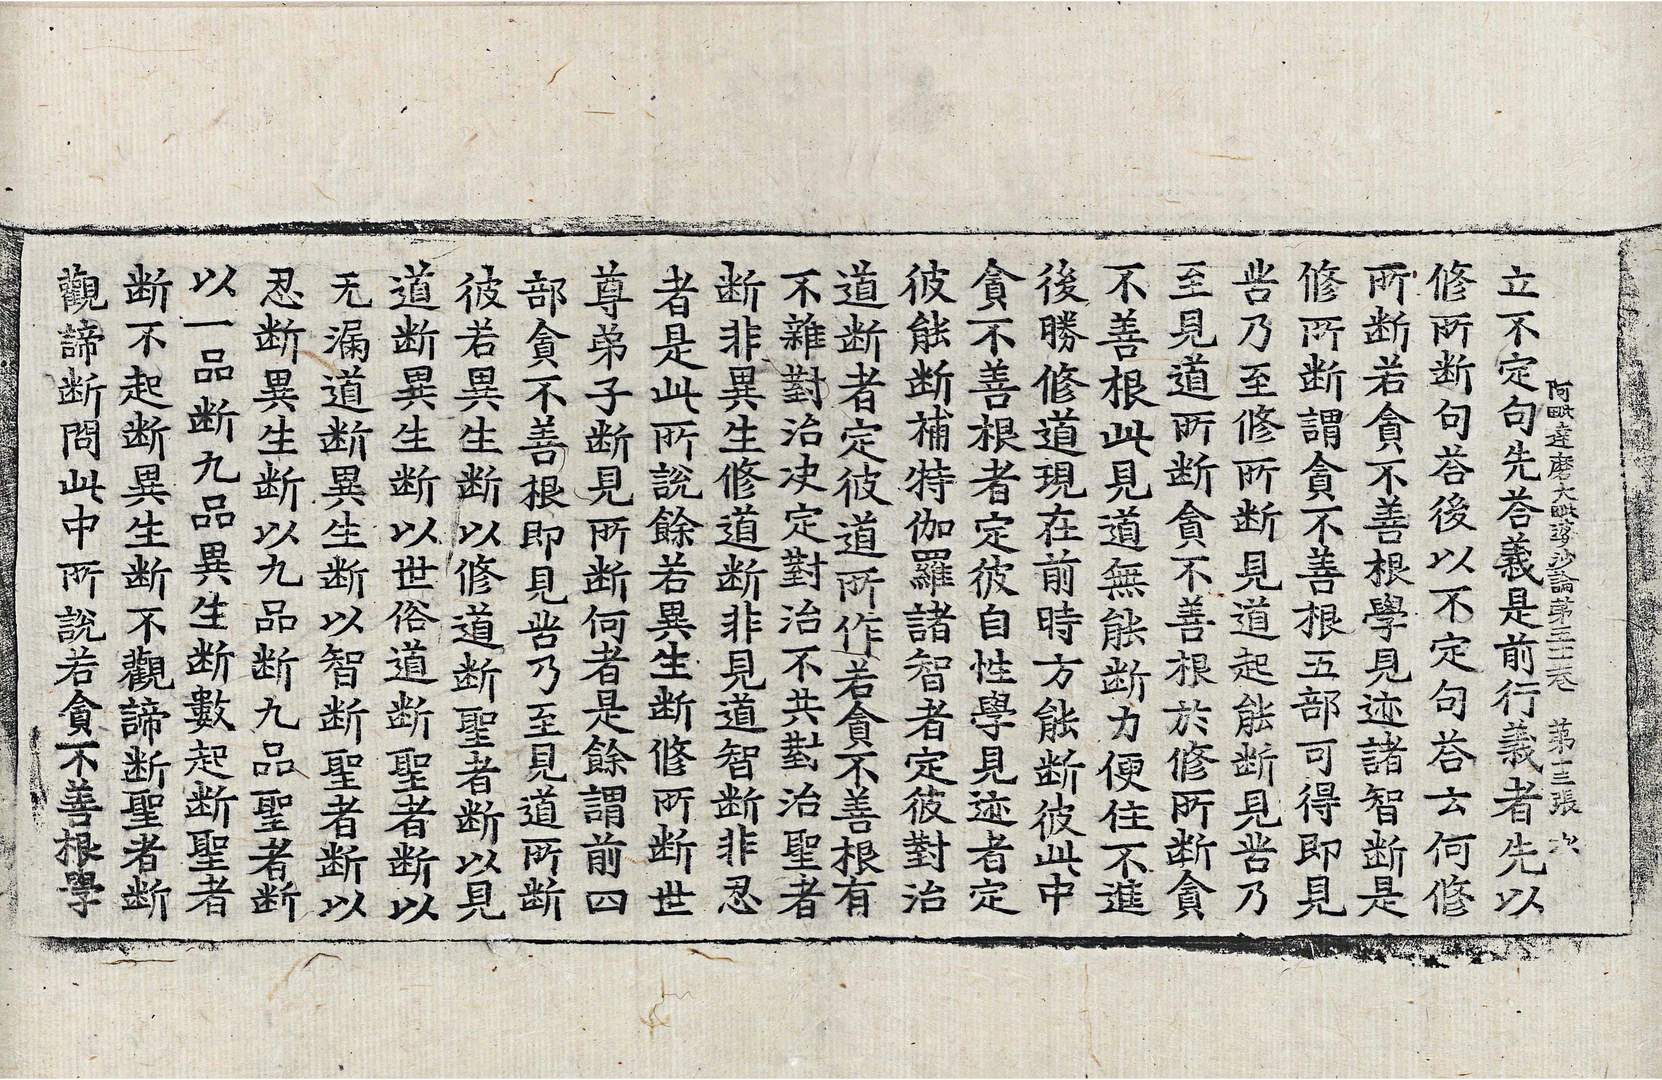 阿毗達磨大毗婆沙論第五十一卷 第三張
立不定句先荅義是前行義者先以
修所断句荅後以不定句荅云何修
所断若貪不善根學見迹諸智断是
修所断謂貪不善根五部可得即見
甞乃至修所断見道起能断見甞乃
至見道所断貪不善根於修所断貪
不善根此見道無能断力便住不進
後勝修道現在前時方能断彼此中
貪不善根者定彼自性學見迹者定
彼能断補特伽羅諸智者定彼對治
道断者定彼道所作若貪不善根有
不雜對治决定對治不共對治聖者
断非異生修道断非見道智断非忍
者是此所說餘若異生断修所断世
尊弟子断見所断何者是餘謂前四
部貪不善根即見甞乃至見道所断
彼若異生断以修道断聖者断以見
道断異生断以世俗道断聖者断以
无漏道断異生断以智断聖者断以
忍断異生断以九品断九品聖者断
以一品断九品異生断數起断聖者
断不起断異生断不觀諦断聖者断
觀諦断問此中所說若貪不善根學